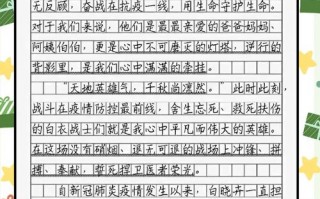 无反顾,奋战在抗疫一线,用生命守护生命。
对于我们来说,他们是最最亲爱的爸爸妈妈、
阿姨伯伯,更是心中不可磨灭的灯塔,逆行的
背影里,是我们心中满满的牵挂。
“天地英雄气,千秋尚凛然。”此时此刻,
战斗在疫情防控最前线,含生忘死、救死扶伤
的白衣战士们就是我心中平凡而伟大的英雄。
在这场没有硝烟、退无可退的战场上冲锋、拼
搏、奉献,誓死捍卫医者荣光。
自新冠肺炎疫情发生以来,白晓卉一直担